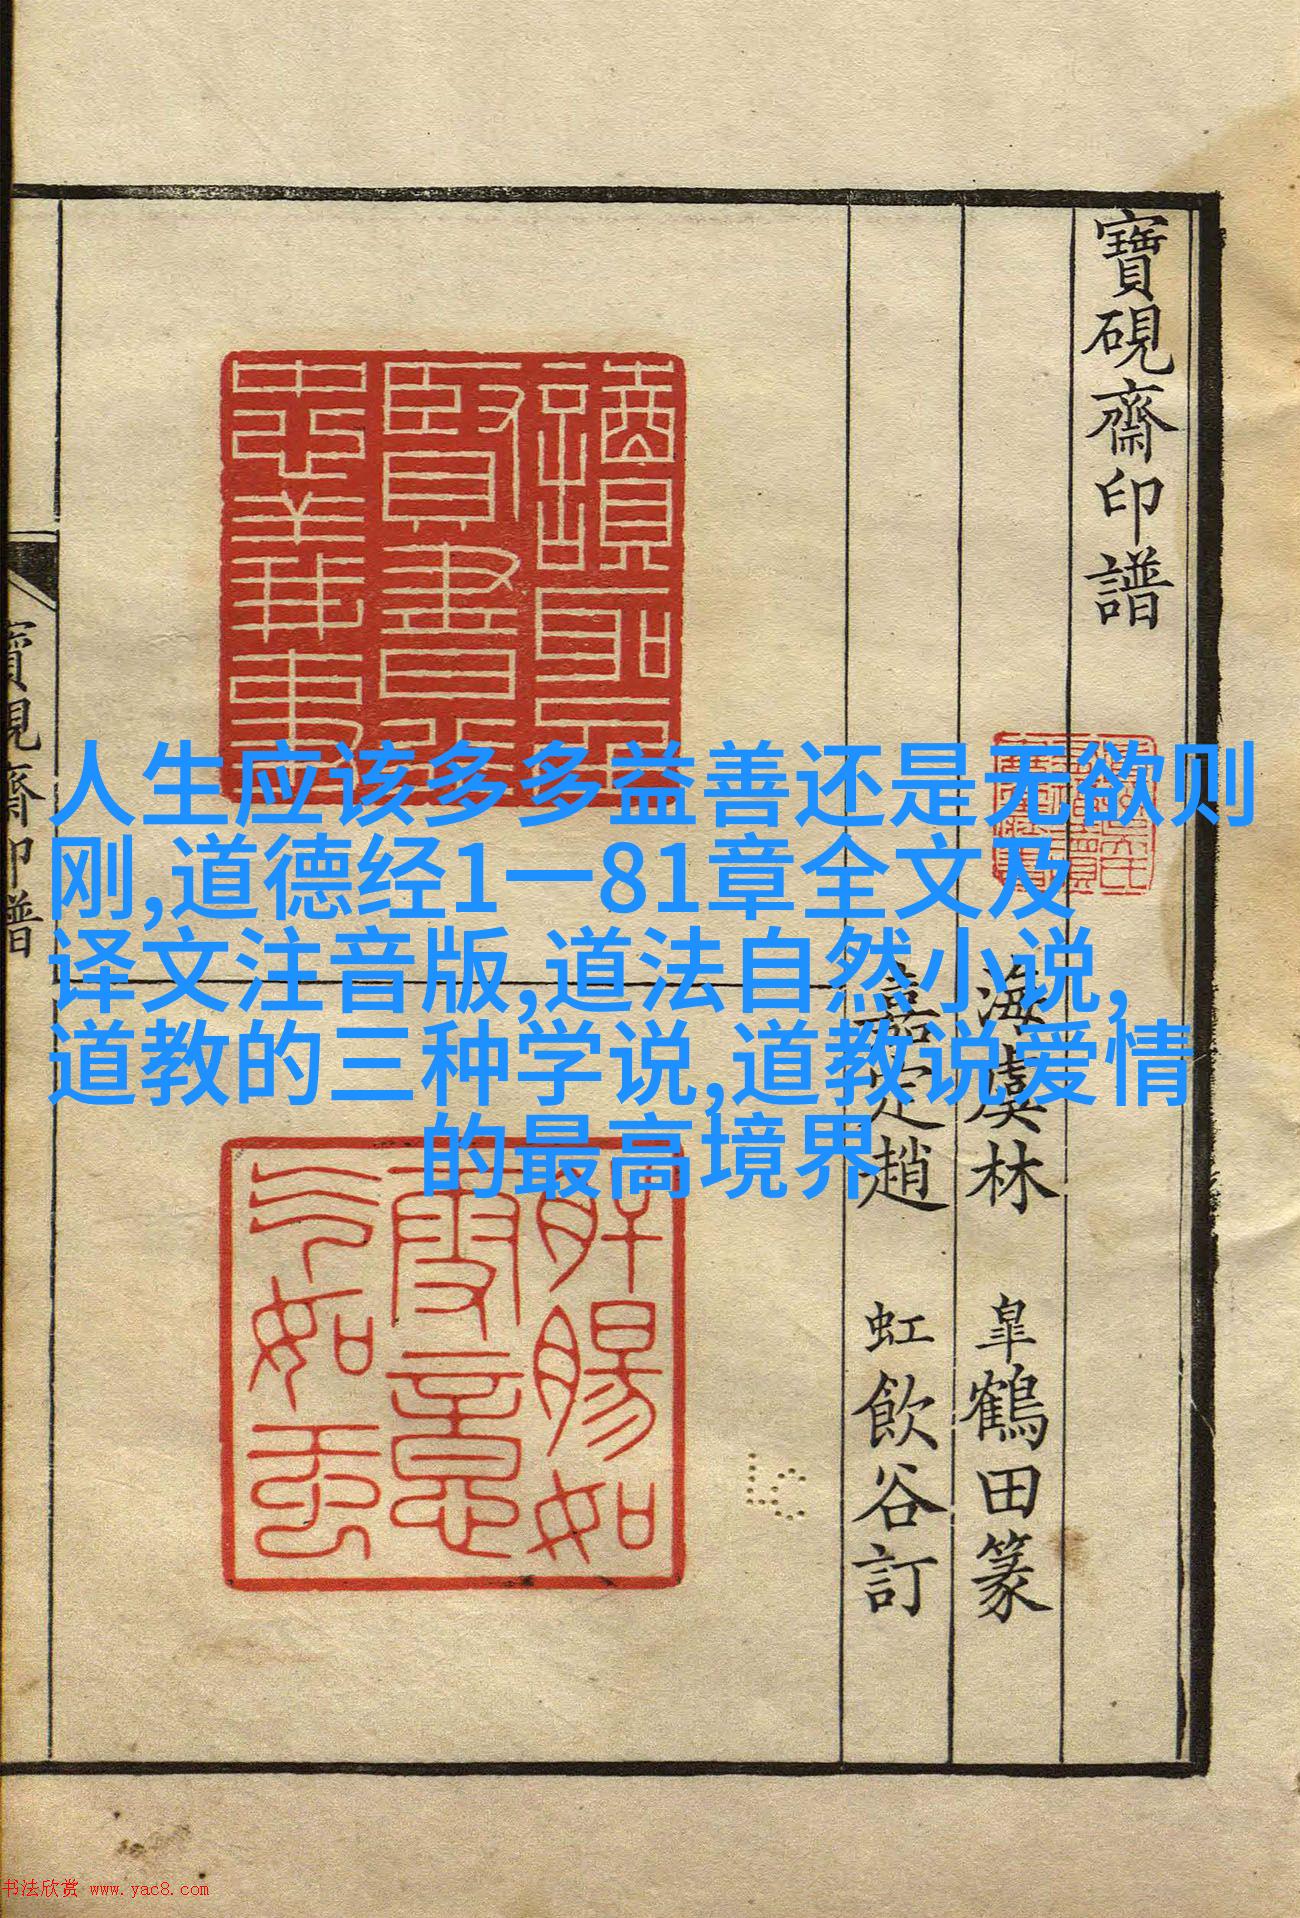 寶硯齋印譜
海虞林 皐鶴田篆
嘉定趙 虹飲谷訂
讀聖
賢書行
忠義事
肝腸如
雪意
氣如雲
人生应该多多益善还是无欲则
刚,道德经1一81章全文及
译文注音版,道法自然小说,
道教的三种学说,道教说爱情
的最高境界
寶硯齋印譜
书法欣赏 www.yac8.com